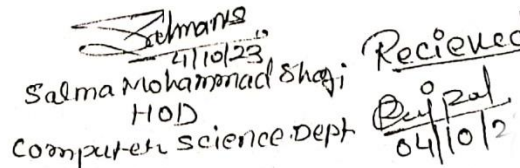 Salma
4/10/23
Salma Mohammad Shagi
HOD
Computer Science Dept
Recieved
04/10/2